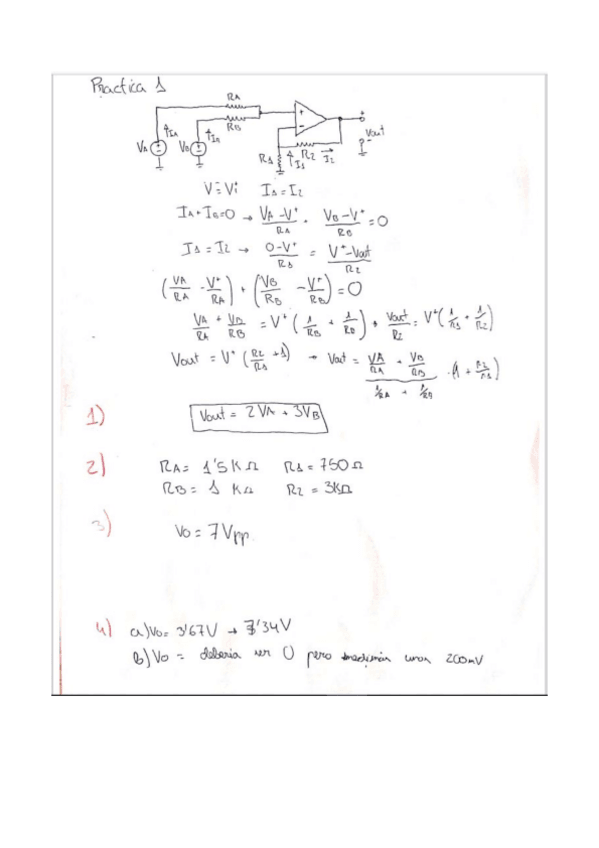 Practica 1
RA
IA
RB
IB
VA
VB
+
-
R1
I1
R2
I2
+
Vout
-
V⁻=V⁺ I1=I2
IA+IB=0 → (VA-V⁺)/RA + (VB-V⁺)/RB =0
I1=I2 → (0-V⁺)/R1 = (V⁺-Vout)/R2
(VA/RA - V⁺/RA) + (VB/RB - V⁺/RB) =0
VA/RA + VB/RB = V⁺(1/RA + 1/RB) , Vout/R2 = V⁺(1/R1 + 1/R2)
Vout = V⁺(R2/R1 +1) → Vout = (VA/RA + VB/RB)/(1/RA + 1/RB) · (1 + R2/R1)
1) Vout = 2VA + 3VB
2) RA= 1'5KΩ R1= 750Ω
RB= 1 KΩ R2= 3KΩ
3) Vo= 7Vpp.
4) a) Vo= 3'67V → 7'34V
b) Vo = deberia ser 0 pero 200mV